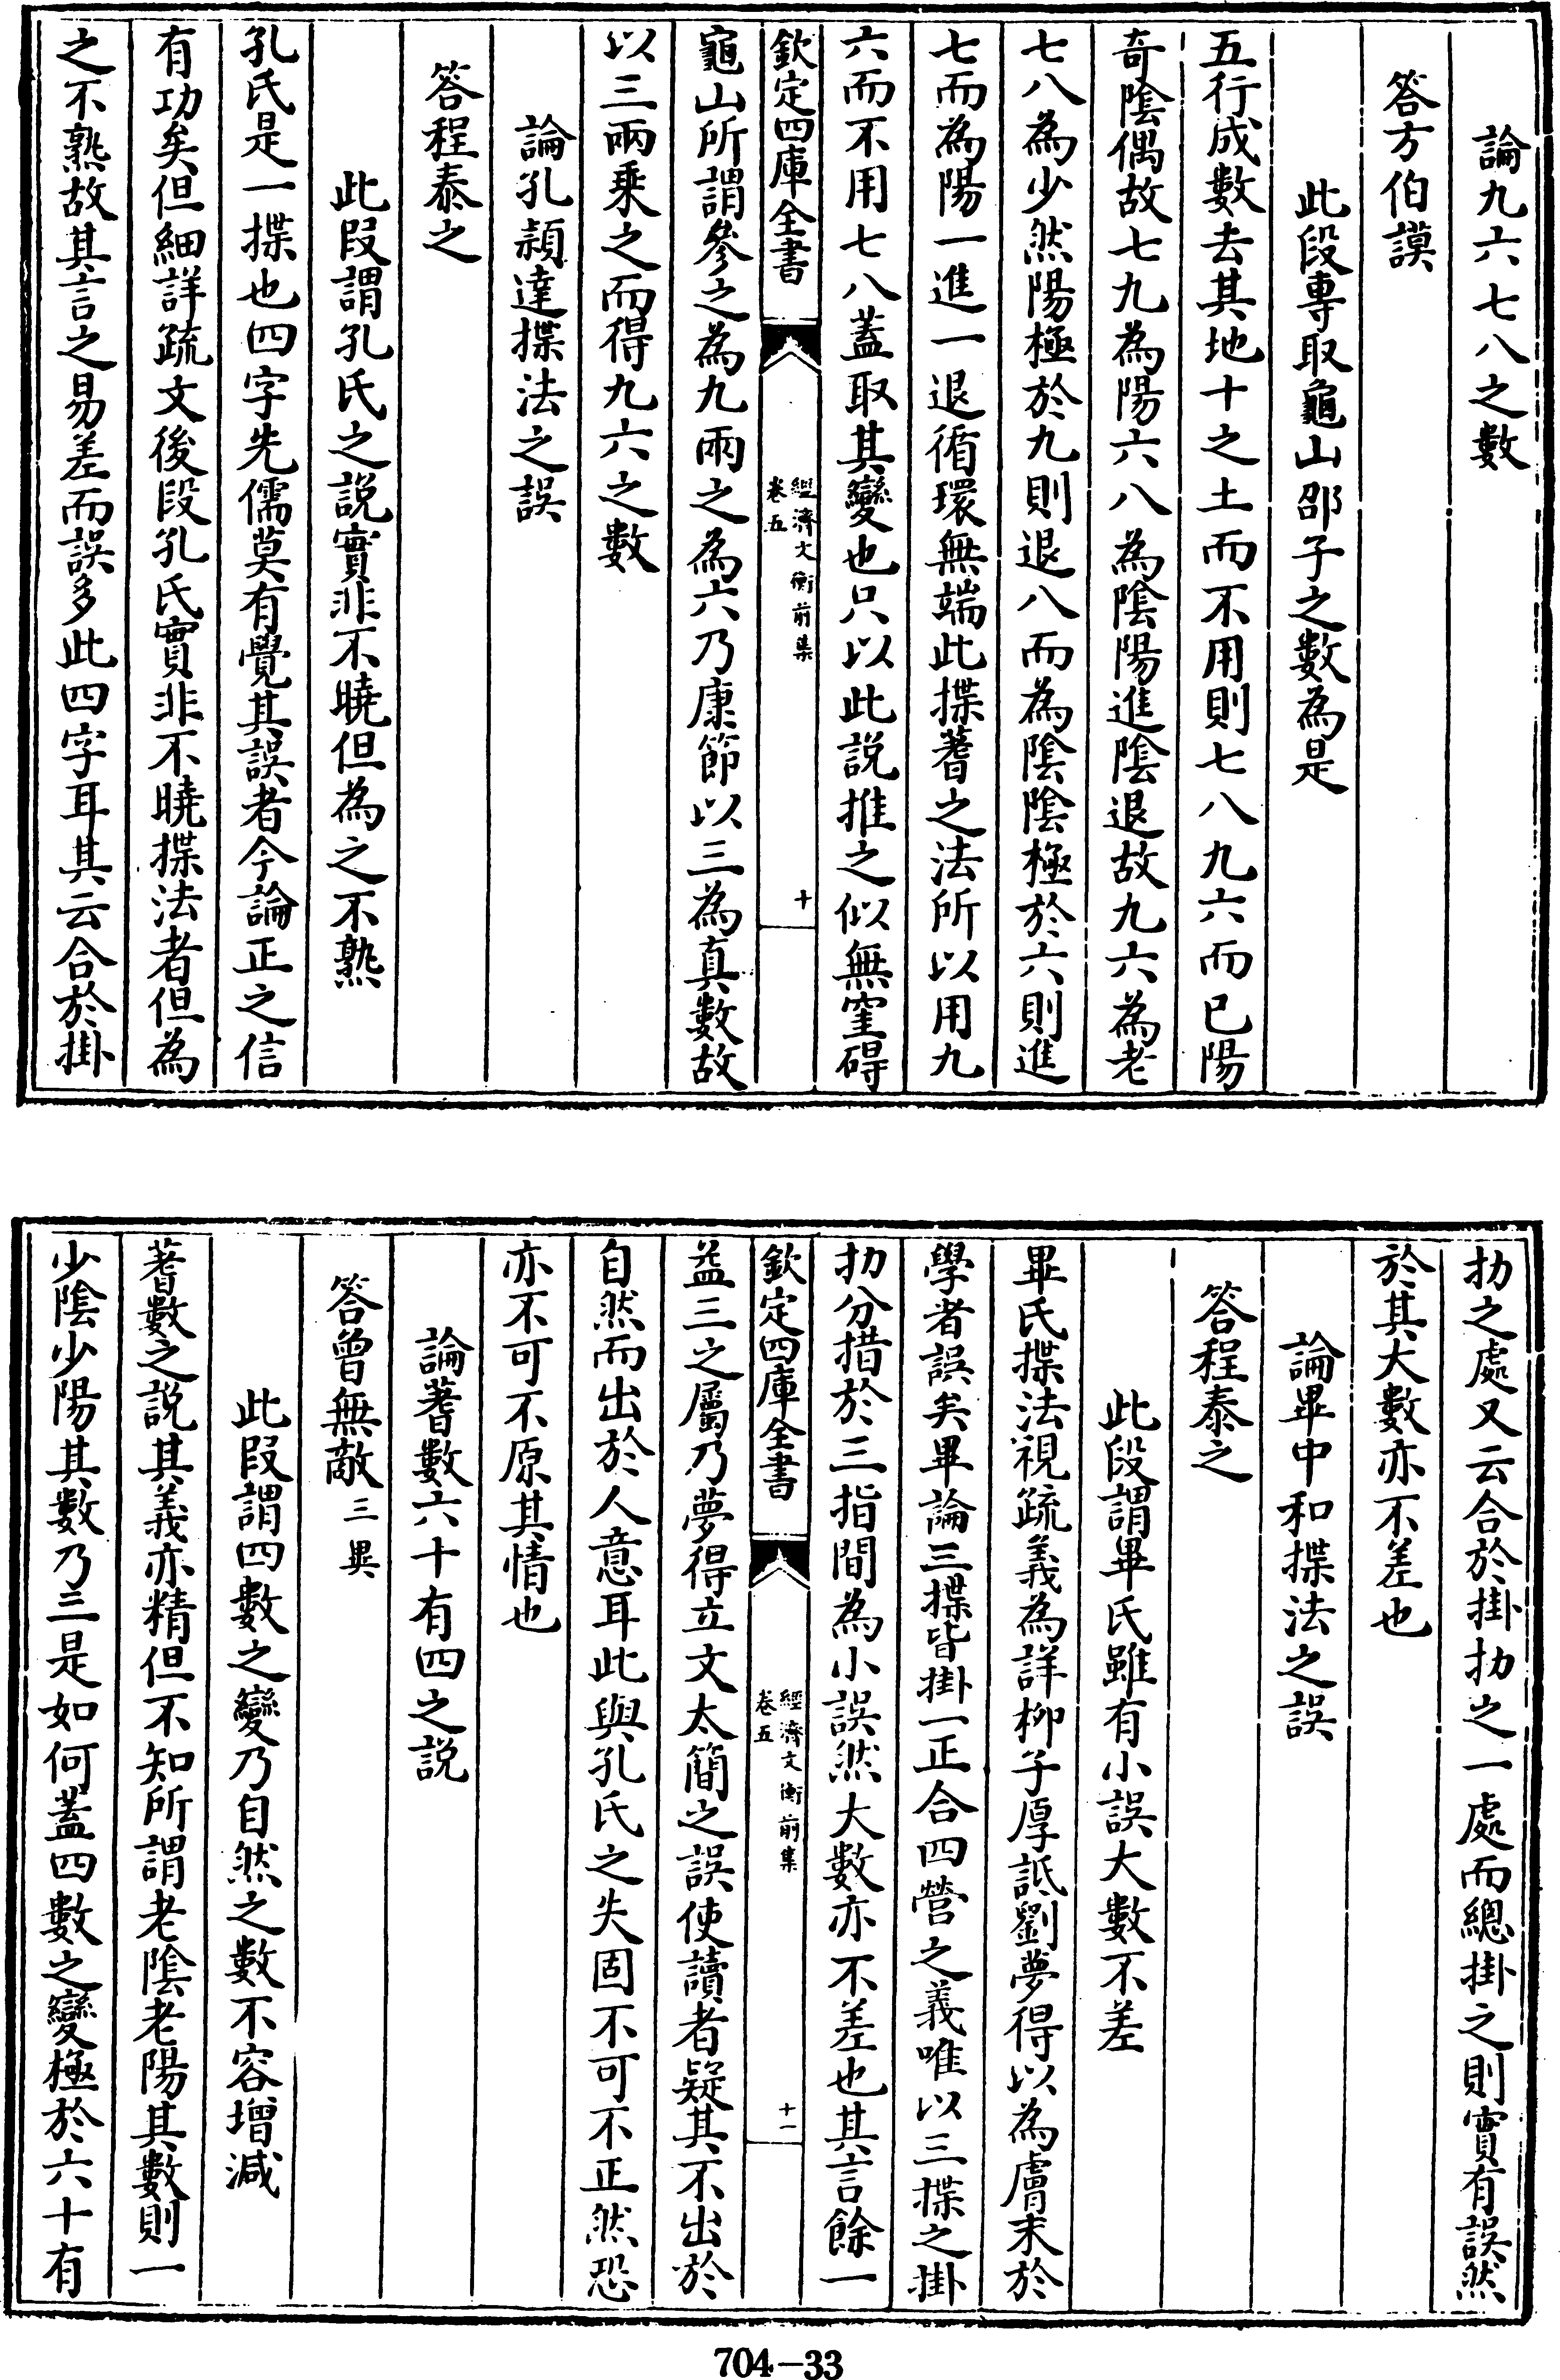 論九六七八之數
答方伯謨
此段專取龜山邵子之數為是
五行成數去其地十之土而不用則七八九六而已陽
奇陰偶故七九為陽六八為陰陽進陰退故九六為老
七八為少然陽極於九則退八而為陰陰極於六則進
七而為陽一進一退循環無端此揲蓍之法所以用九
六而不用七八蓋取其變也只以此説推之似無窒碍
欽定四庫全書
經濟文衡前集
卷五
十
龜山所謂參之為九兩之為六乃康節以三為真數故
以三兩乘之而得九六之數
論孔穎達揲法之誤
答程泰之
此段謂孔氏之説實非不曉但為之不熟
孔氏是一揲也四字先儒莫有覺其誤者今論正之信
有功矣但細詳疏文後段孔氏實非不曉揲法者但為
之不熟故其言之易差而誤多此四字耳其云合於掛
扐之處又云合於掛扐之一處而總掛之則實有誤然
於其大數亦不差也
論畢中和揲法之誤
答程泰之
此段謂畢氏雖有小誤大數不差
畢氏揲法視疏義為詳柳子厚詆劉夢得以為膚末於
學者誤矣畢論三揲皆掛一正合四營之義唯以三揲之掛
扐分措於三指間為小誤然大數亦不差也其言餘一
欽定四庫全書
經濟文衡前集
卷五
十一
益三之屬乃夢得立文太簡之誤使讀者疑其不出於
自然而出於人意耳此與孔氏之失固不可不正然恐
亦不可不原其情也
論蓍數六十有四之説
答曾無敵三異
此段謂四數之變乃自然之數不容增減
蓍數之説其義亦精但不知所謂老陰老陽其數則一
少陰少陽其數乃三是如何蓋四數之變極於六十有
704-33